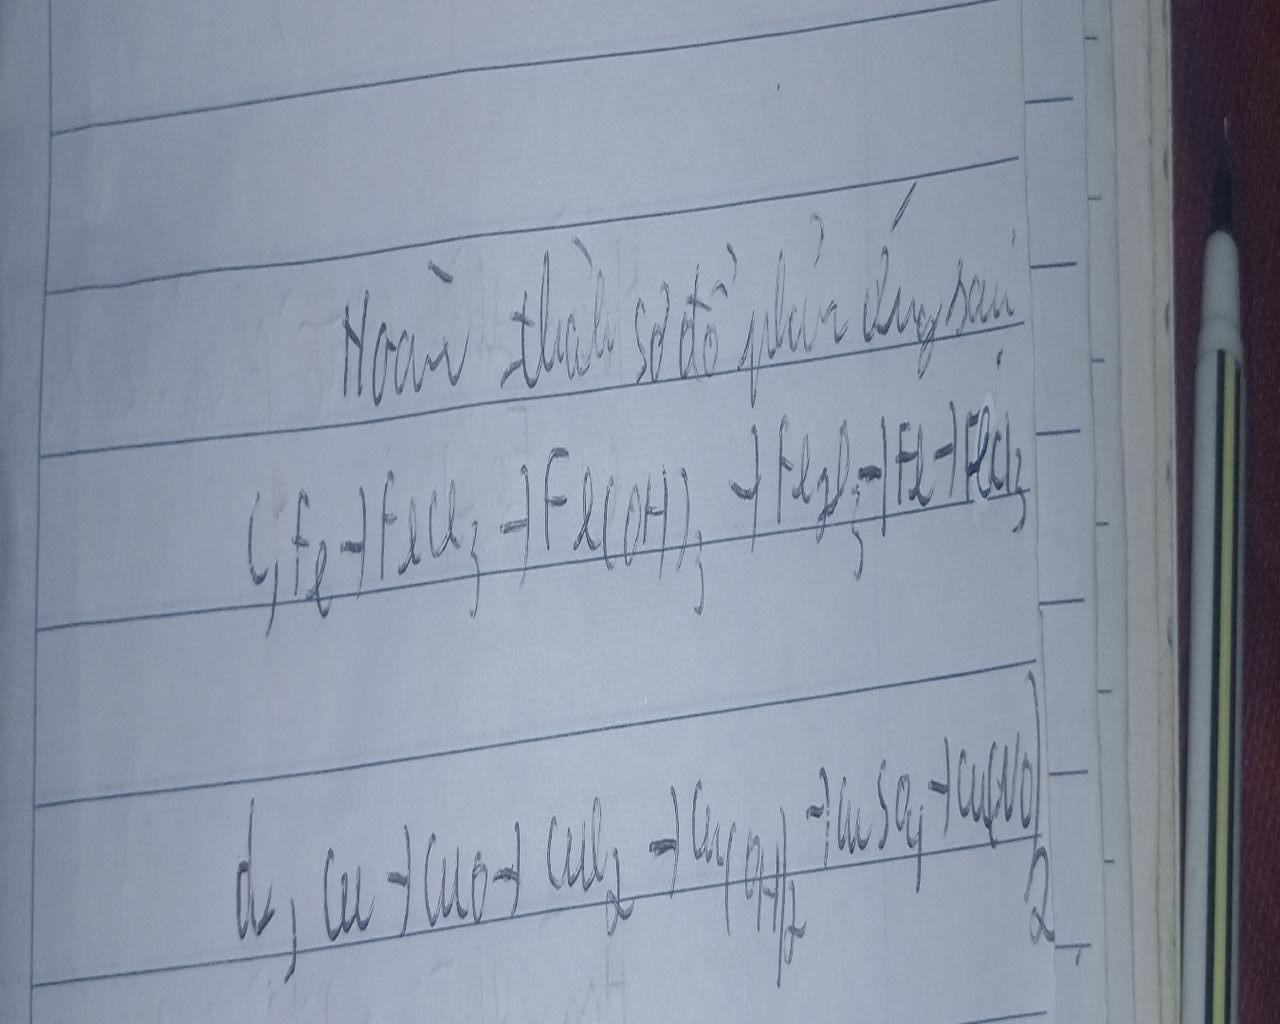 Hoàn thành sơ đồ phản ứng sau
c, Fe → FeCl3 → Fe(OH)3 → Fe2O3 → Fe → FeCl3
d, Cu → CuO → CuCl2 → Cu(OH)2 → CuSO4 → Cu(NO)2